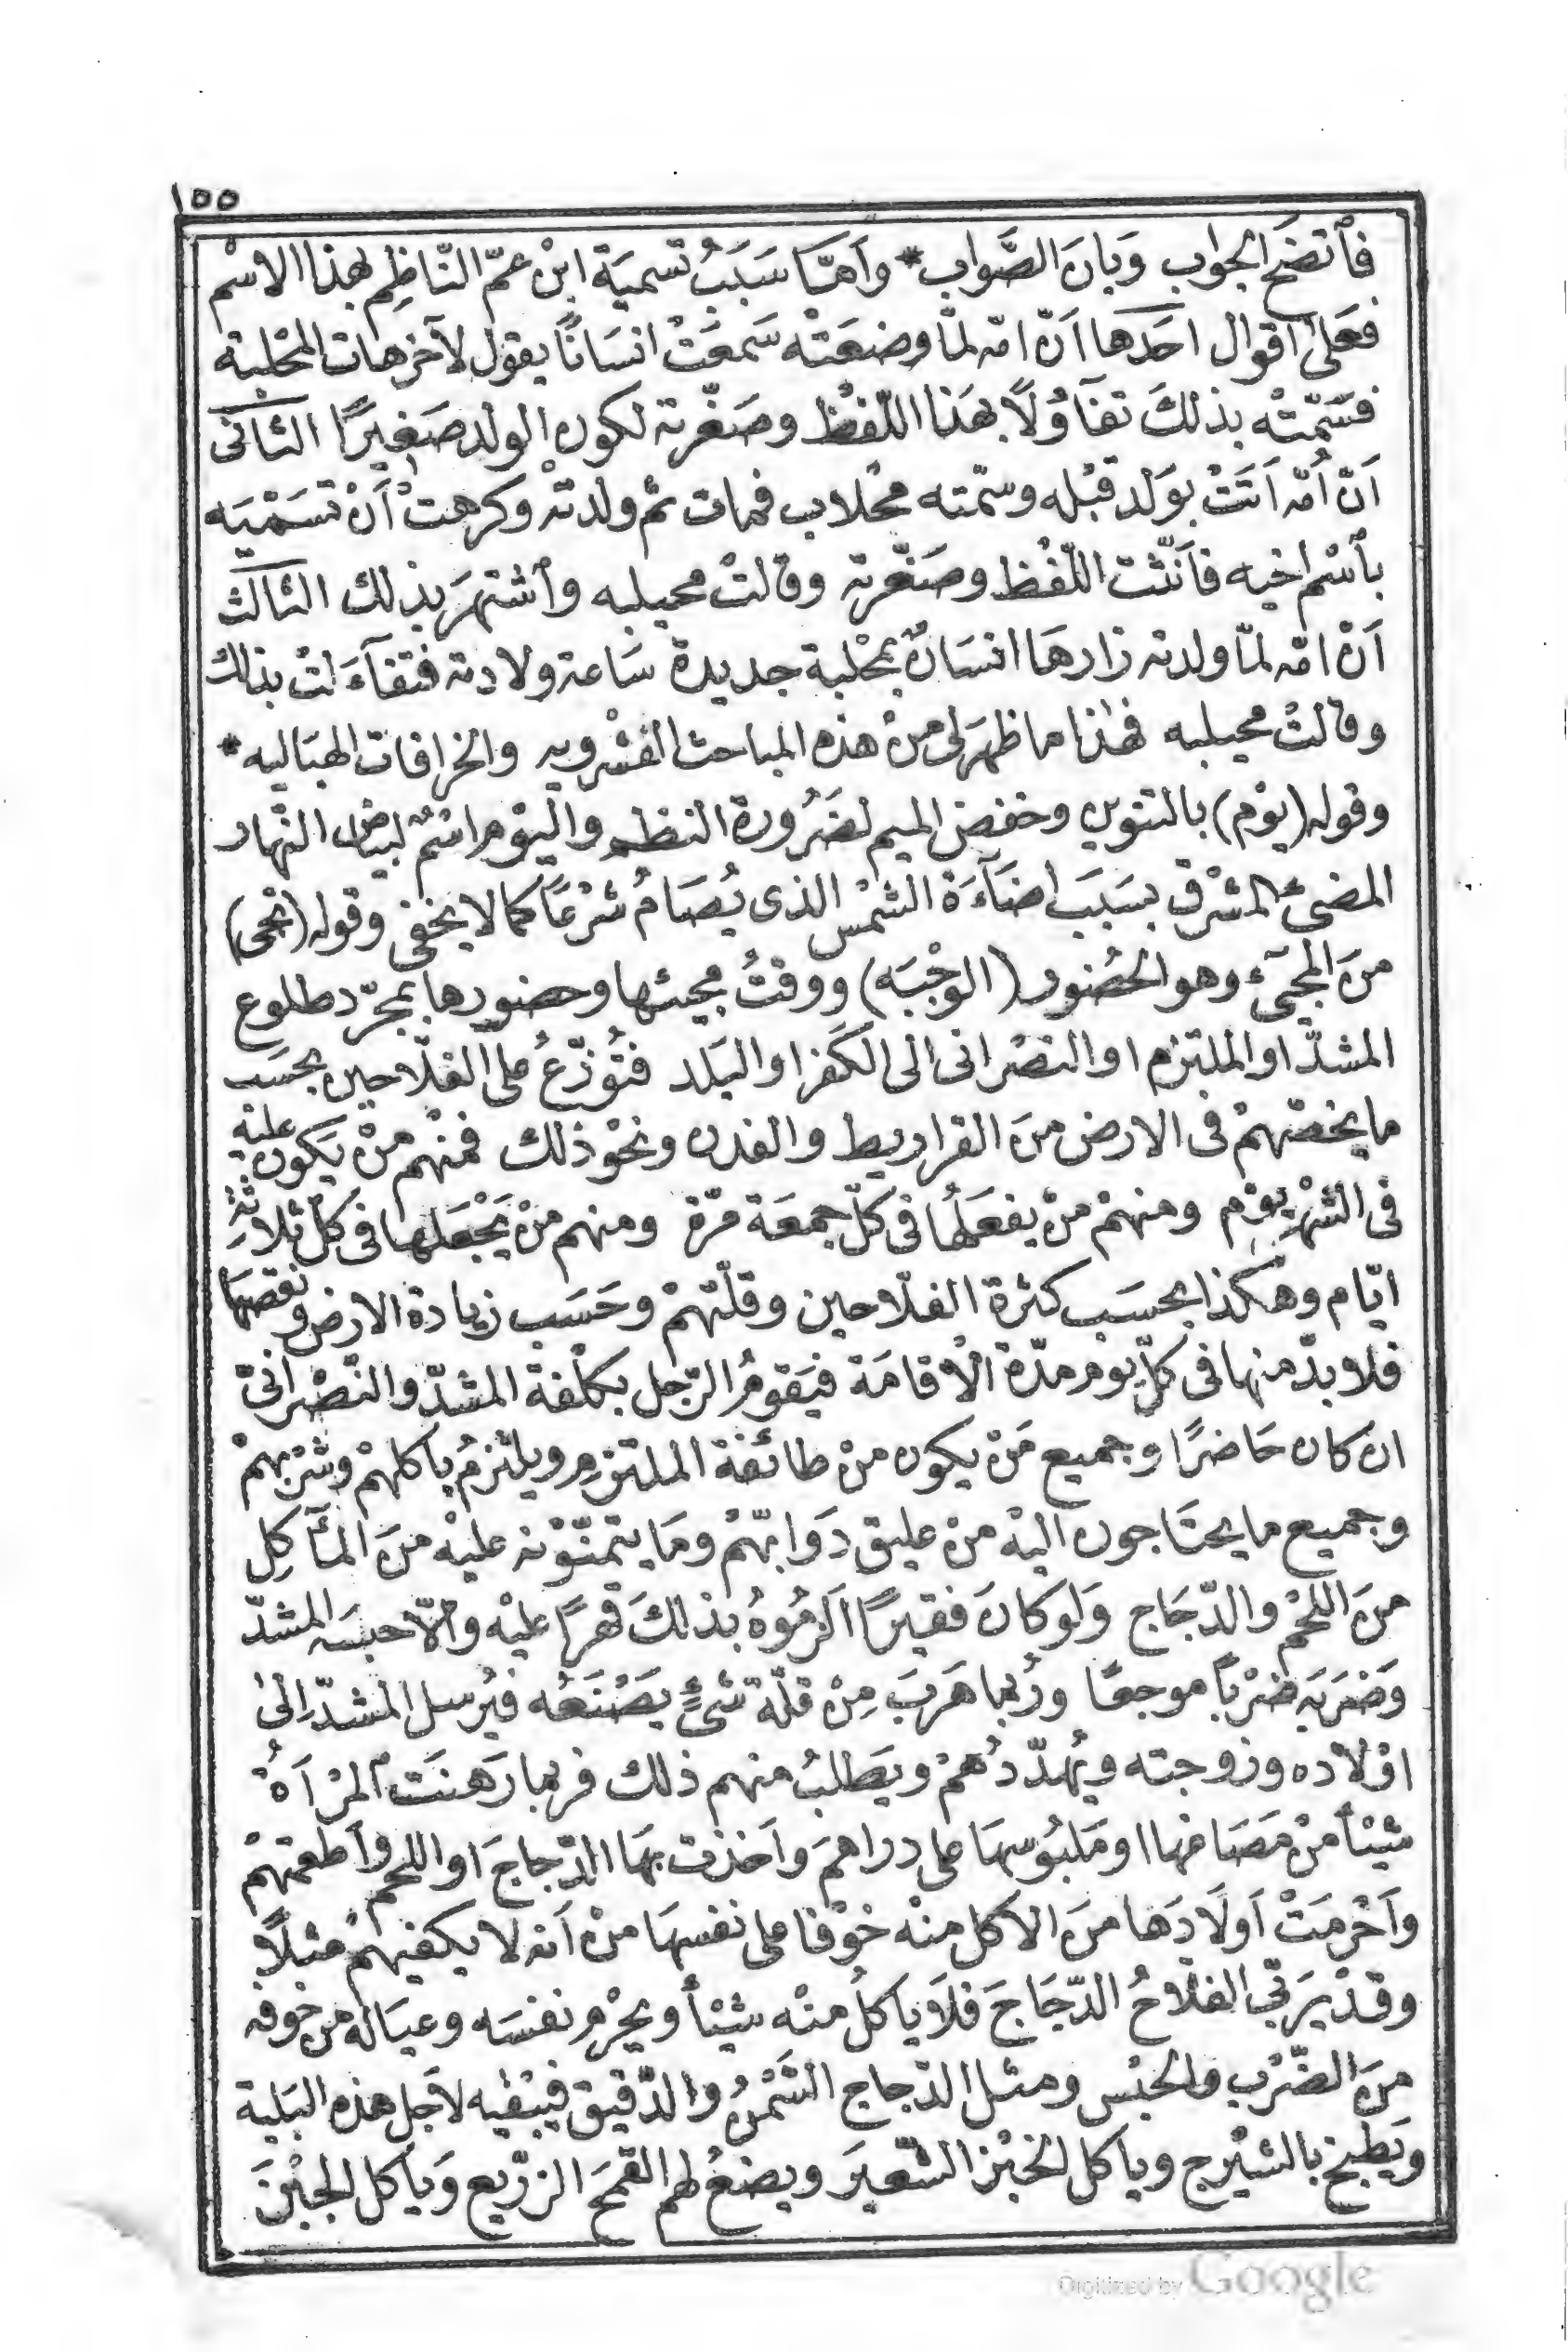 ١٥٥
فٱتضحَ الجواب وَبانَ الصَّواب * وَأمّا سَبَبُ تسميَة ابْن عمّ النّاظِم بهذا الاسْم
فعَلى اقوال احَدها اَنّ امّه لمّا وضعَتْه سَمعَتْ انسَانًا يقول لآخر هات المحْلبة
فسَمّتْه بذلكَ تفَاؤُلًا بهَذا اللّفظ وصَغّرته لكون الولد صَغيرًا الثانى
اَنّ اُمّه اَتَتْ بوَلد قبْله وسمّته محْلاب فمات ثم ولدتْه وكرهتْ اَنْ تسَمْيَه
بٱسْم اخيه فاَنّثت اللّفْظ وصَغّرته وقالتْ محيلبه وٱشتهَر بذلك الثالث
اَنّ امّه لمّا ولدته زارهَا انسَانٌ بمحْلبة جديدة سَاعة ولادته فتفآءَلتْ بذلك
وقالتْ محيلبه فهٰذا ما ظهَر لى منْ هذه المباحث الفشْرويه والخرافات الهبَاليه *
وقوله (يوْم) بالتنوين وخفض الميم لضَرُورة النظم واليَوْم اسْمٌ لبيَاض النّهار
المضئ المشْرق بسَبَب اضَآءَة الشمْس الذى يُصَامُ شرْعًا كما لا يخفى وقوله (تجى)
منَ المجئ وهو الحُضور (الوجْبَه) ووقتُ مجيئها وحضورها بمجرّد طلوع
المشدّ او الملتزم او النصْرانى الى الكَفر او البَلد فتُوزّعُ على الفلّاحين بحسَب
ما يخصّهمْ فى الارض منَ القراريط والفدن ونحْو ذلك فمنْهم منْ يَكون عليه
فى الشهْر يوْم ومنهمْ منْ يفعَلُها فى كلّ جمعَة مرّة ومنهم منْ يَجْعَلها فى كلّ ثلاثةِ
ايّام وهكذا بحسَب كثرة الفلّاحين وقلّتهمْ وحَسَب زيادة الارض ونقصهَا
فلا بدّ منها فى كلّ يوم مدّة الاقامَة فيَقومُ الرّجل بكلْفة المشدّ والنّصْرانىّ
ان كان حَاضرًا وجميع مَنْ يكون منْ طائفة الملتزم ويلتزمُ باكلهمْ وشرْبهمْ
وجميع ما يحتَاجون اليْه منْ عليق دَوابّهمْ ومَا يتمنّوْنه عليْه منَ المآكِل
منَ اللحْم والدّجَاج وَلو كانَ فقيرًا اَلزمُوهُ بذلكَ قهرًا عليْه وٱلّا حبسَه المشدّ
وَضرَبه ضرْبًا موجعًا ورُبما هَربَ مِنْ قلّة شئٍ يصْنَعُه فيُرسل المشدّ الىٰ
اوْلاده وزوجته ويُهدّدُهمْ ويَطلبُ منهم ذلك فربما رَهنَت المرْاَةُ
شيْئًا منْ مَصَاغها او مَلبُوسهَا على دراهمَ واَخذت بهَا الدّجاجَ او اللحم وٱطعمتهمْ
واَحْرمَتْ اَولَادَها منَ الاكل منْه خوْفا على نفسهَا منْ اَنه لا يكفيهمْ مثلًا
وقدْ يرَبّى الفلّاحُ الدّجَاجَ فلَا ياكلُ منْه شيْئًا ويحْرم نفسَه وعيَاله من خوفه
منَ الضّرْب والحبْس ومثل الدّجاج السّمْنُ والدّقيق فيبْقيه لاَجل هذه البَلية
ويَطبخ بالشيْرج وياكل الخبْز الشّعيرَ ويصْنعُ لهم القمْحَ الزرّيع وَياكل الجبْنَ